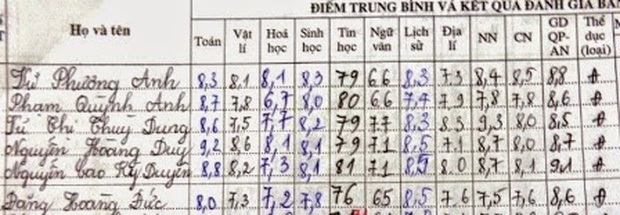 ĐIỂM TRUNG BÌNH VÀ KẾT QUẢ ĐÁNH GIÁ
Họ và tên Toán Vật lí Hoá học Sinh học Tin học Ngữ văn Lịch sử Địa lí NN CN GD QP-AN Thể dục (loại)
Từ Phương Anh 8,3 8,1 8,1 8,3 79 6.6 8,3 7.3 8,4 8,5 8,8 Đ
Phạm Quỳnh Anh 8,7 7,8 6,7 8,0 80 6.6 7,4 7.9 7,8 7,8 8,6 Đ
Từ Thị Thuỳ Dung 8,6 7,5 7,7 8,2 79 7.7 8,3 8.3 9,3 8,0 8,5 Đ
Nguyễn Hoàng Duy 9,2 8,6 8,1 8,1 79 7.1 8,5 7.1 8,7 8,0 8,7 Đ
Nguyễn Cao Kỳ Duyên 8,8 8,2 7,3 8,1 81 7.1 8,5 8.0 8,7 8,1 9,1 Đ
Đặng Hoàng Đức 8,0 7,3 7,2 7,8 76 6.5 8,5 7.6 7,5 7,6 8,6 Đ